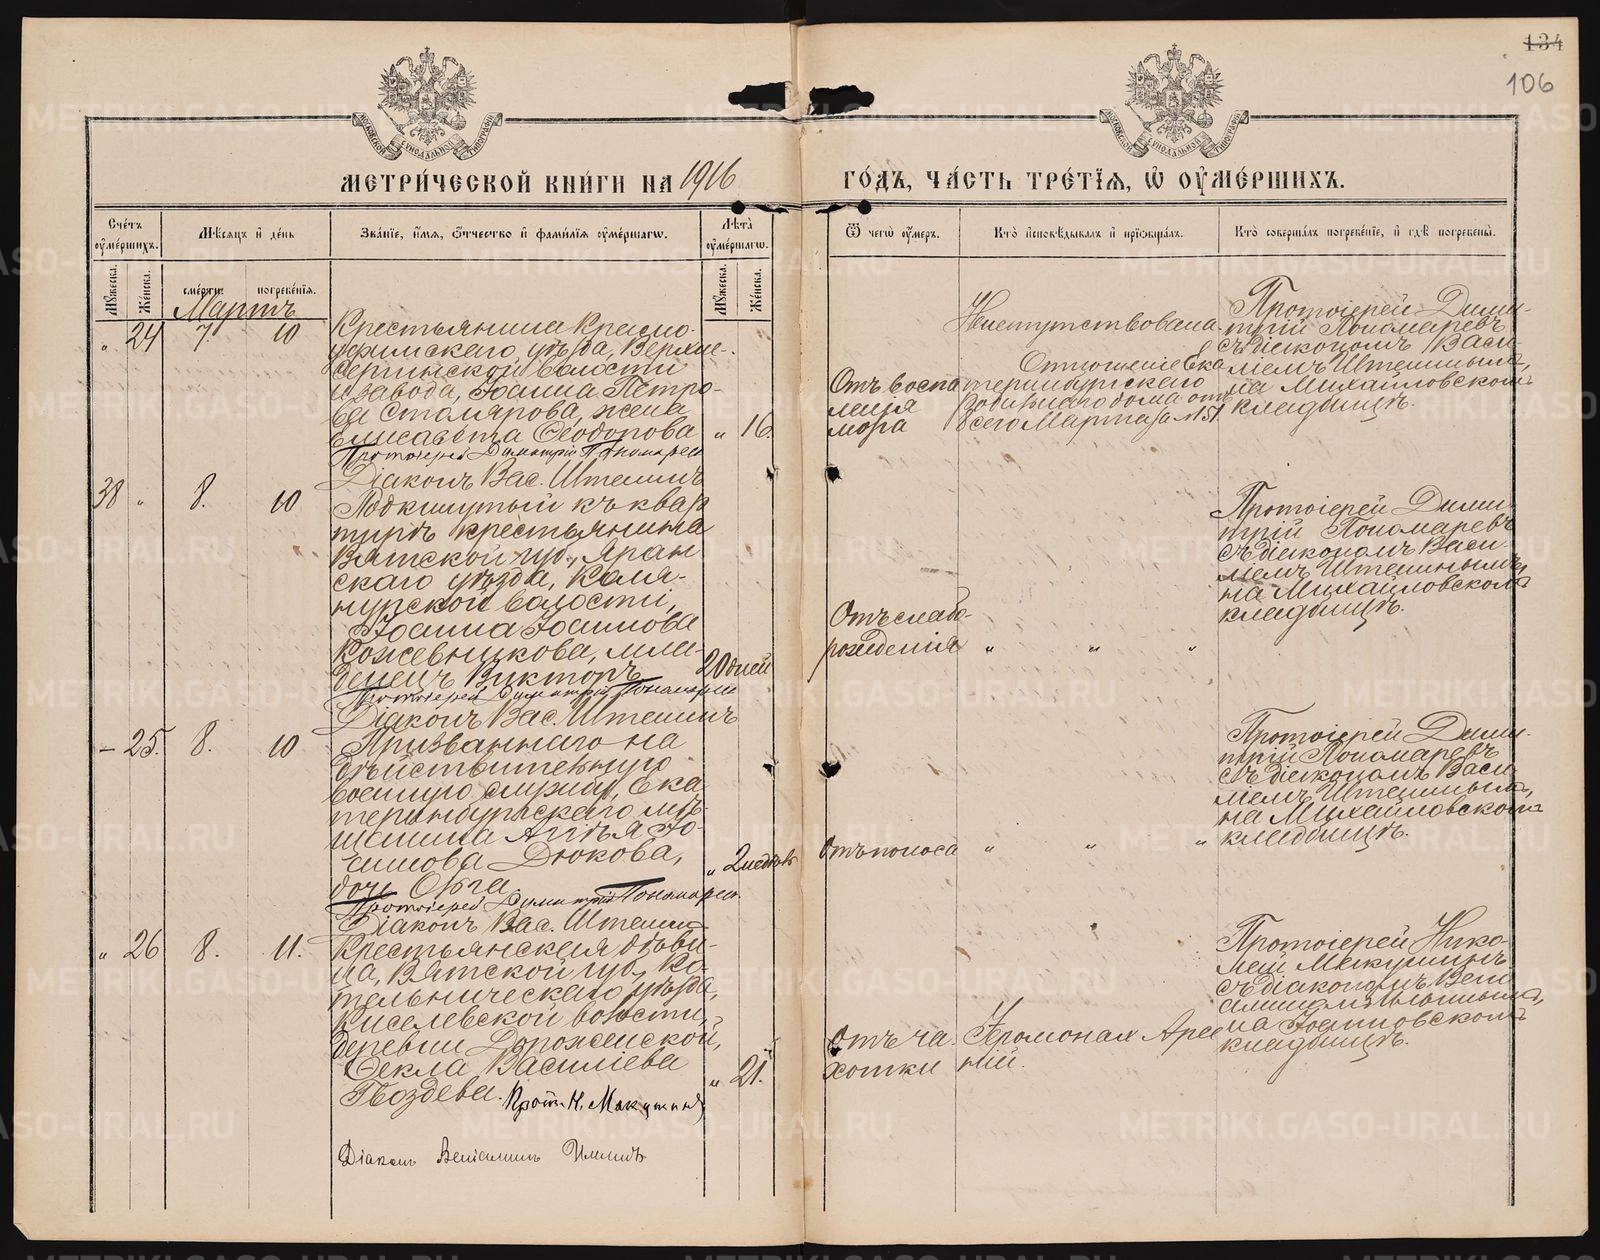 134
106
МЕТРИ́ЧЕСКОЙ КНИ́ГИ НА 1916
ГО́ДЪ, ЧА́СТЬ ТРЕ́ТЇѦ, Ѡ҆ ОУ҆МЕ́РШИХЪ.
Сче́тъ оу҆ме́ршихъ.
Мѣ́сяцъ и҆ де́нь
Зва́нїе, и҆́мѧ, ѻ҆́тчество и҆ фами́лїѧ оу҆ме́ршагѡ.
Лѣ́та оу҆ме́ршагѡ.
Ѿ чегѡ̀ оу҆́меръ.
Кто̀ и҆сповѣ́дывалъ и҆ прїѡбща́лъ.
Кто̀ соверша́лъ погребе́нїе, и҆ гдѣ̀ погребены̀.
Му́жеска.
Же́нска.
сме́рти.
погребе́нїѧ.
Му́жеска.
Же́нска.
Мартъ
" 24 7 10
Крестьянина Красно-
уфимскаго уѣзда, Верхне-
Сергинской волости
и завода, Іоанна Петро-
ва Столярова, жена
Елисавета Ѳеодорова
" 16.
Протоіерей Димитрій Пономаревъ
Діаконъ Вас. Штенинъ
Отъ воспа
ленія
мозга
Отношеніе Ека
теринбургскаго
Родильнаго дома отъ
8 сего Марта за №51.
Протоіерей Дими-
трій Пономаревъ
съ діакономъ Васи-
ліемъ Штенинымъ,
на Михайловскомъ
кладбищѣ.
38 " 8. 10
Подкинутый къ квар
тирѣ крестьянина
Вятской губ., Яран
скаго уѣзда,
волости,
Іоанна Іоаннова
Кожевникова, мла-
денецъ Викторъ
20 дней
Протоіерей Димитрій Пономаревъ
Діаконъ Вас. Штенинъ
Отъ слабо-
рожденія
" " "
Протоіерей Дими
трій Пономаревъ
съ діакономъ Васи-
ліемъ Штенинымъ,
на Михайловскомъ
кладбищѣ.
– 25. 8. 10
Призваннаго на
дѣйствительную
военную службу, Ека
теринбургскаго мѣ-
щанина
Дюкова,
дочь Ольга
" 2 недѣль
Протоіерей Димитрій Пономаревъ.
Діаконъ Вас. Штенинъ
Отъ поноса
" " "
Протоіерей Дими-
трій Пономаревъ
съ діакономъ Васи
ліемъ Штенинымъ,
на Михайловскомъ
кладбищѣ.
" 26 8. 11.
Крестьянская дѣви-
ца, Вятской губ., Ко-
тельническаго уѣзда,
Киселевской волости,
деревни Дорожинской,
Ѳекла Василіева
Гвоздева.
" 21.
Прот. Н. Макушинъ
Діаконъ Веніаминъ
Отъ ча
хотки
Іеромонах Арсе
ній.
Протоіерей Нико-
лай Макушинъ
съ діакономъ Вені
аминомъ
на Іоанновскомъ
кладбищѣ.
METRIKI.GASO-URAL.RU